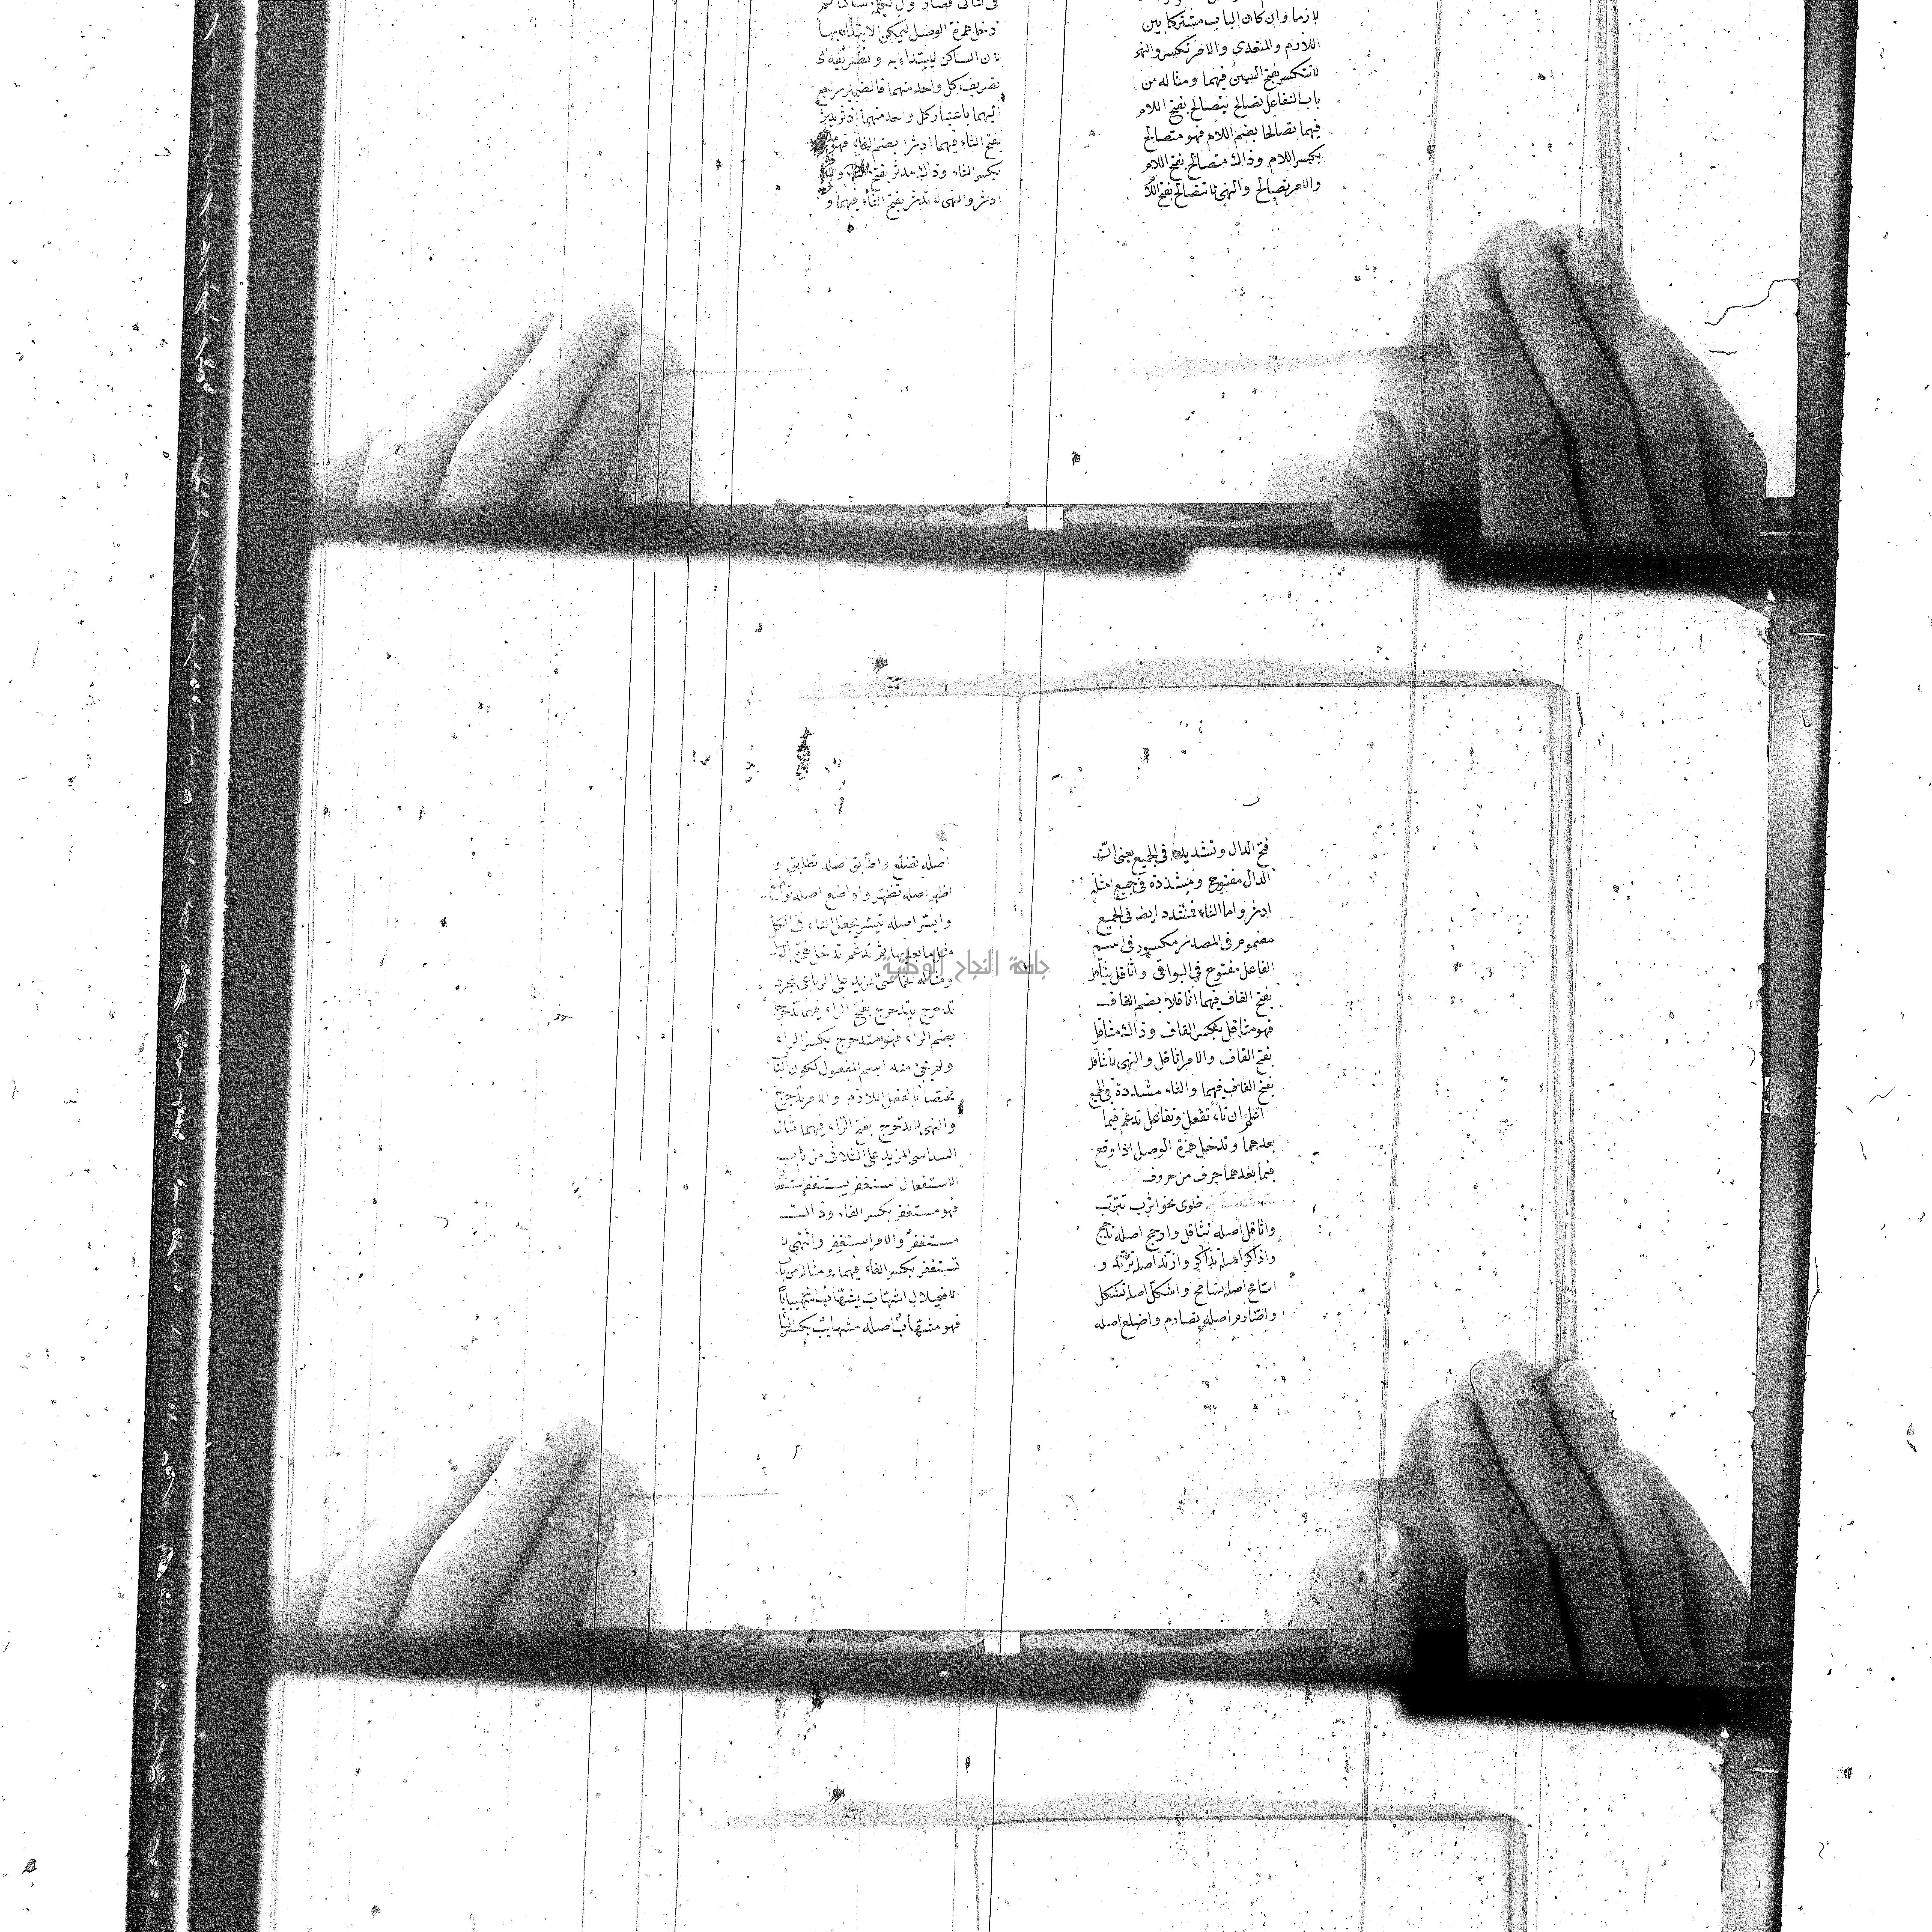 لازما وان كان الباب مشتركا بين
اللازم والمتعدى والامر تكسر والنهى
لاتتكسر بفتح السين فيهما ومثاله من
باب التفاعل تصالح يتصالح بفتح اللام
فيهما تصالحا بضم اللام فهو متصالح
بكسر اللام وذاك متصالح بفتح اللام
والامر تصالح والنهى لا تتصالح بفتح اللا
دخل همزة الوصل ليمكن الابتداء بها
لان الساكن لا يبتداء به
تصريف كل واحد منهما
اليهما باعتبار كل واحد منهما ادثر يدثر
بفتح الثاء فيهما ادثرا بضم الثاء فهو
بكسر الثاء وذاك مدثر بفتح
ادثر والنهى لا تدثر بفتح الثاء فيهما و
فتح الدال وتشديد فى الجميع يعنى ان
الدال مفتوح ومشددة فى جميع امثلة
ادثر واما الثاء فتشدد ايضه فى الجميع
مضموم فى المصدر مكسور فى اسم
الفاعل مفتوح فى البواقى واثاقل يثاقل
بفتح القاف فيهما اثاقلا بضم القاف
فهو مثاقل بكسر القاف وذاك مثاقل
بفتح القاف والامر اثاقل والنهى لا تثاقل
بفتح القاف فيهما والثاء مشددة فى الجميع
اعلم ان تاء تفعل وتفاعل تدغم فيما
بعدهما وتدخل همزة الوصل اذا وقع
فيما بعدهما حرف من حروف
نحو اترب تترب
واثاقل اصله تثاقل وادجج اصله تدجج
واذاكر اصله تذاكر وازند اصله تزند و
اشامخ اصله تشامخ واشكل اصله تشكل
واصادم اصله تصادم واضلع اصله
اصله تضلع واطابق اصله تطابق و
اظهر اصله تظهر
جامعة النجاح الوطنية
تدحرج يتدحرج بفتح الراء فيهما تدحرجا
بضم الراء فهو متدحرج بكسر الراء
منه اسم المفعول لكون البنا
مختصا بالفعل اللازم والامر تدحرج
والنهى لا تدحرج بفتح الراء فيهما مثال
السداسى المزيد على الثلاثى من باب
الاستفعال استغفر يستغفر استغفا
فهو مستغفر بكسر الفاء وذاك
مستغفر والامر استغفر والنهى لا
تستغفر بكسر الفاء فيهما ومثاله من با
الافعيلال اشهاب يشهاب اشهيبابا
فهو مشهاب اصله مشهابب بكسر البا